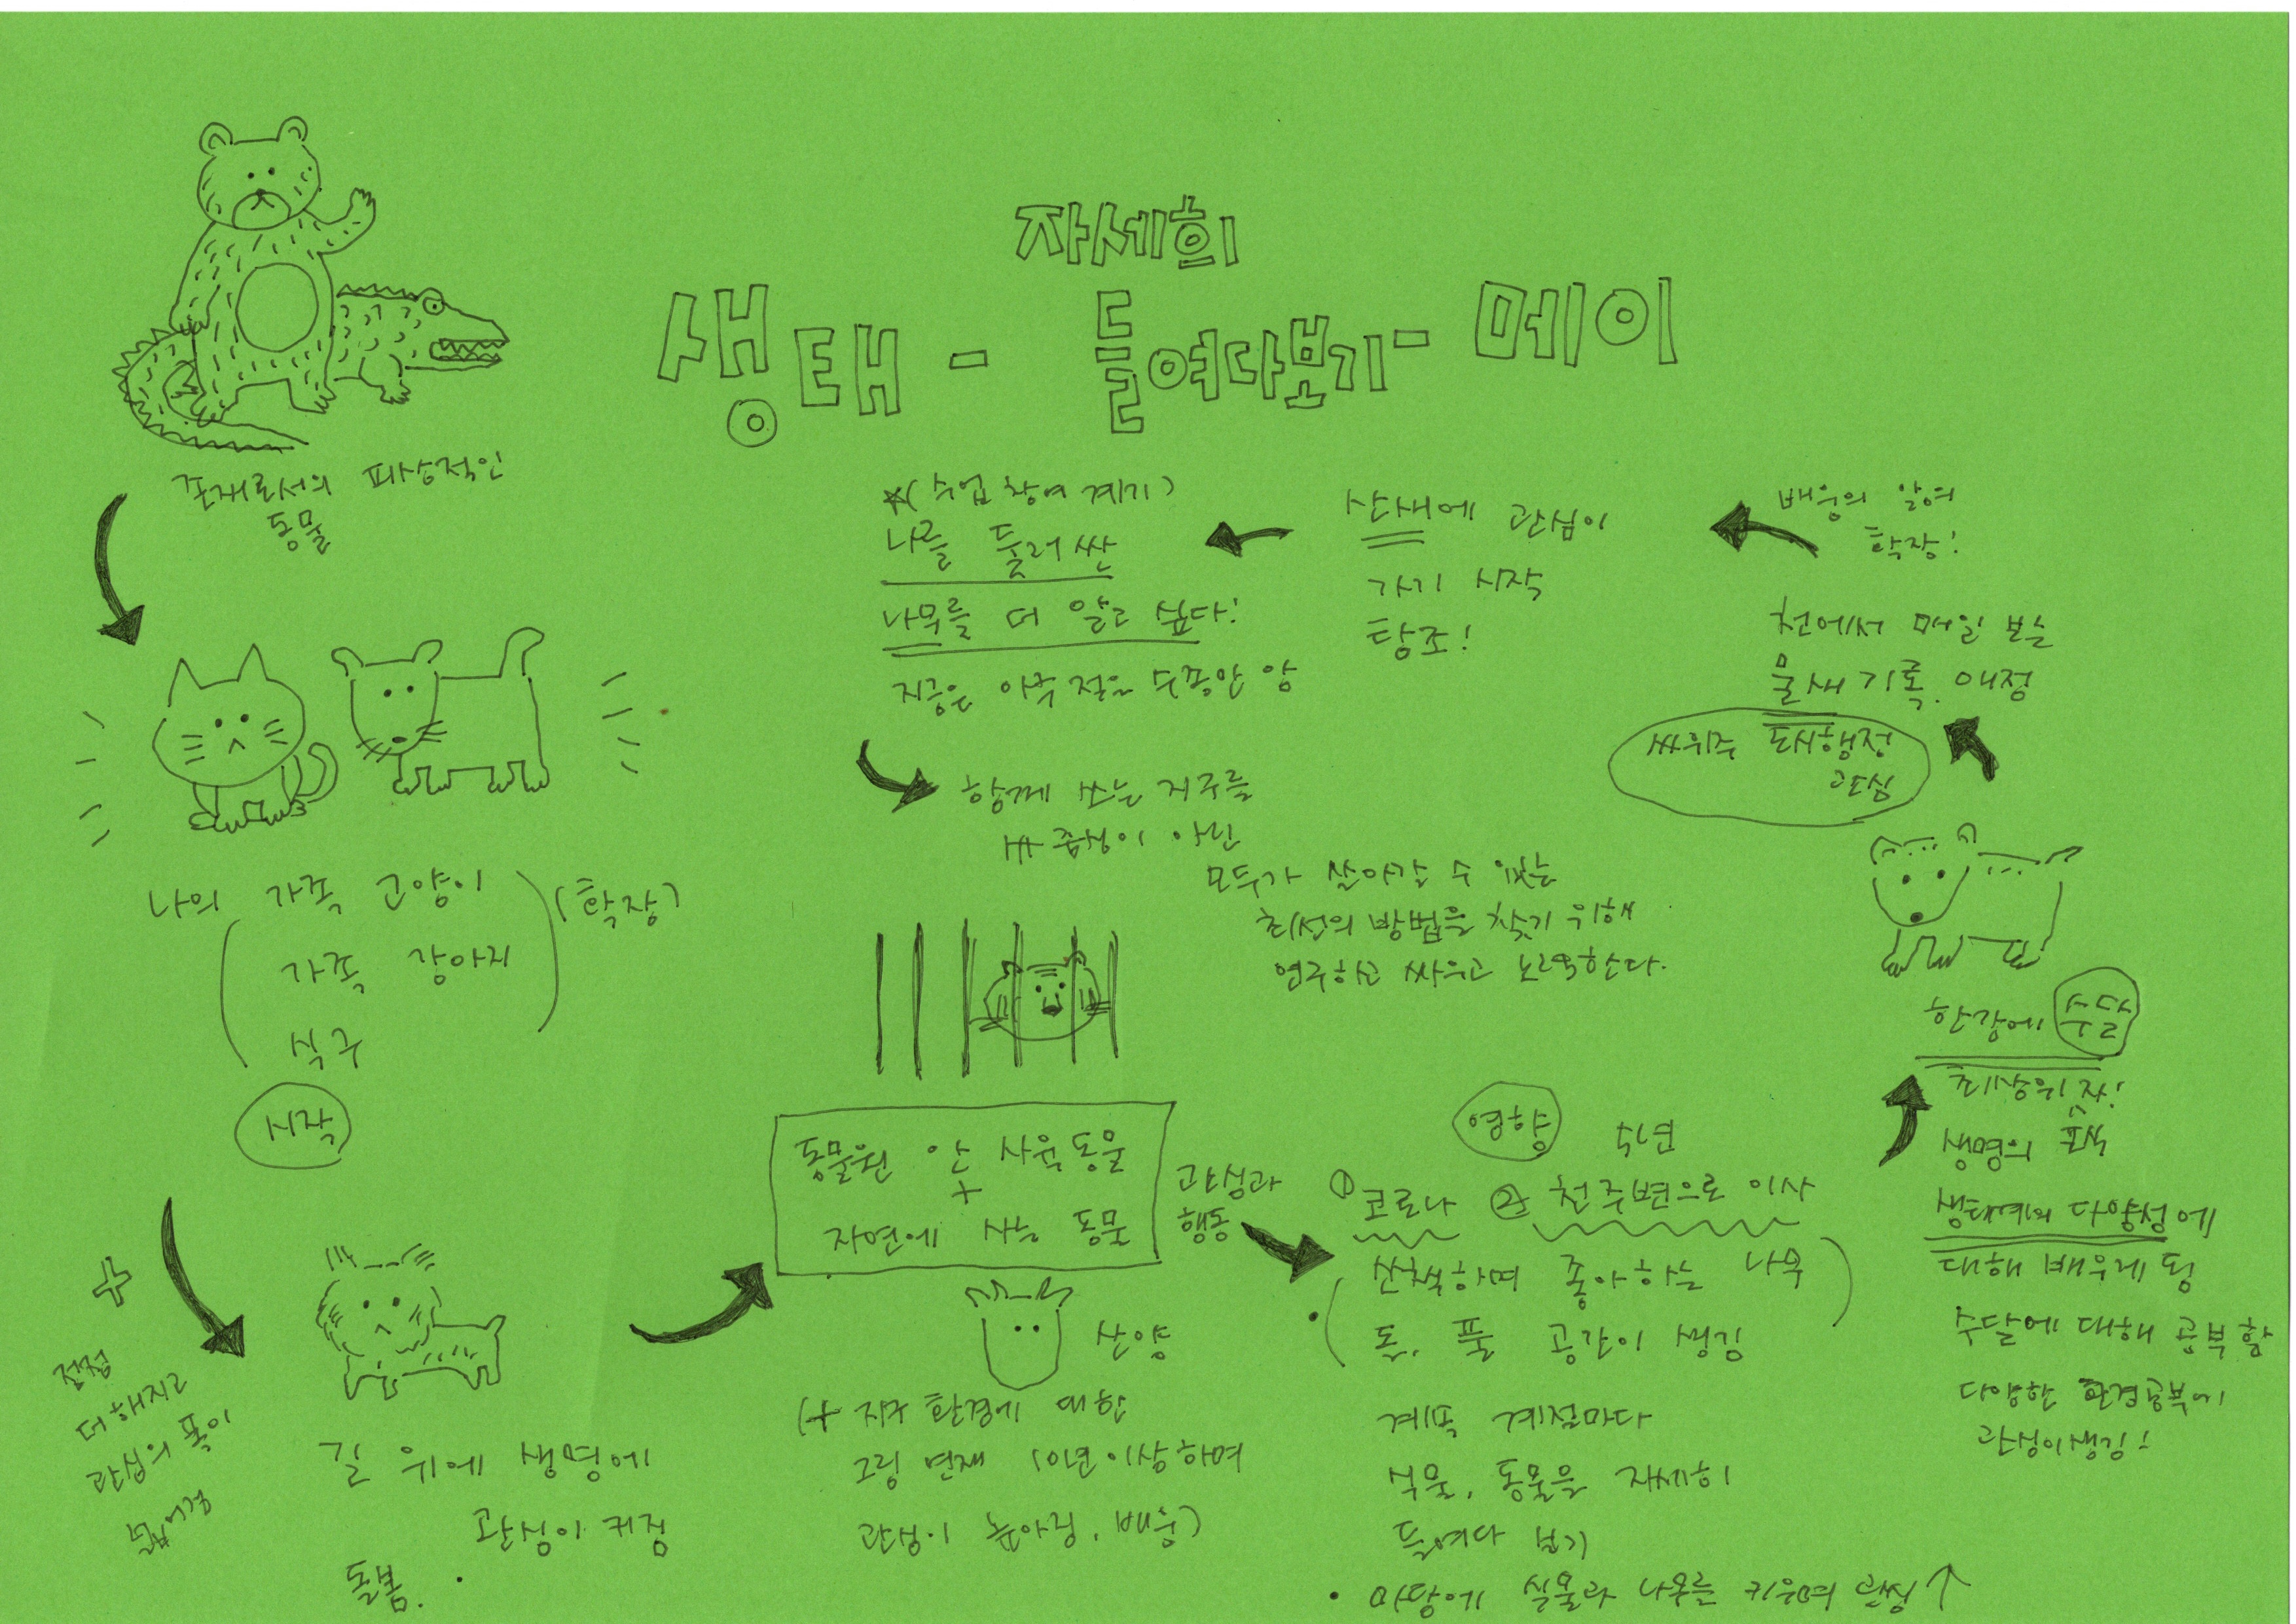 자세히
생태 - 들여다보기 - 메이
존재로서의 피상적인
동물
나의 가족 고양이
가족 강아지
식구
(확장)
시작
+
점점
더해지고
관심의 폭이
넓어짐
길 위에 생명에
관심이 커짐
돌봄.
동물원 안 사육동물
+
자연에 사는 동물
관심과
행동
산양
(+ 지구 환경에 대한
그림 연재 10년 이상하며
관심이 높아짐, 배움)
영향
5년
① 코로나 ② 천주변으로 이사
산책하며 좋아하는 나무
돌, 풀 공간이 생김
계속 계절마다
식물, 동물을 자세히
들여다 보기
• 마당에 식물과 나무를 키우며 관심 ↑
한강에 수달
최상위 자!
생명의 포식
생태계의 다양성에
대해 배우게 됨
수달에 대해 공부함
다양한 환경공부에
관심이 생김!
싸위주 도시행정
관심
천에서 매일 보는
물새 기록, 애정
배움의 영역
확장!
산새에 관심이
가기 시작
탐조!
★(수업 참여 계기)
나를 둘러싼
나무를 더 알고 싶다!
지금은 아주 적은 수종만 앎
함께 쓰는 지구를
人 중심이 아닌
모두가 살아갈 수 있는
최선의 방법을 찾기 위해
연구하고 싸우고 노력한다.